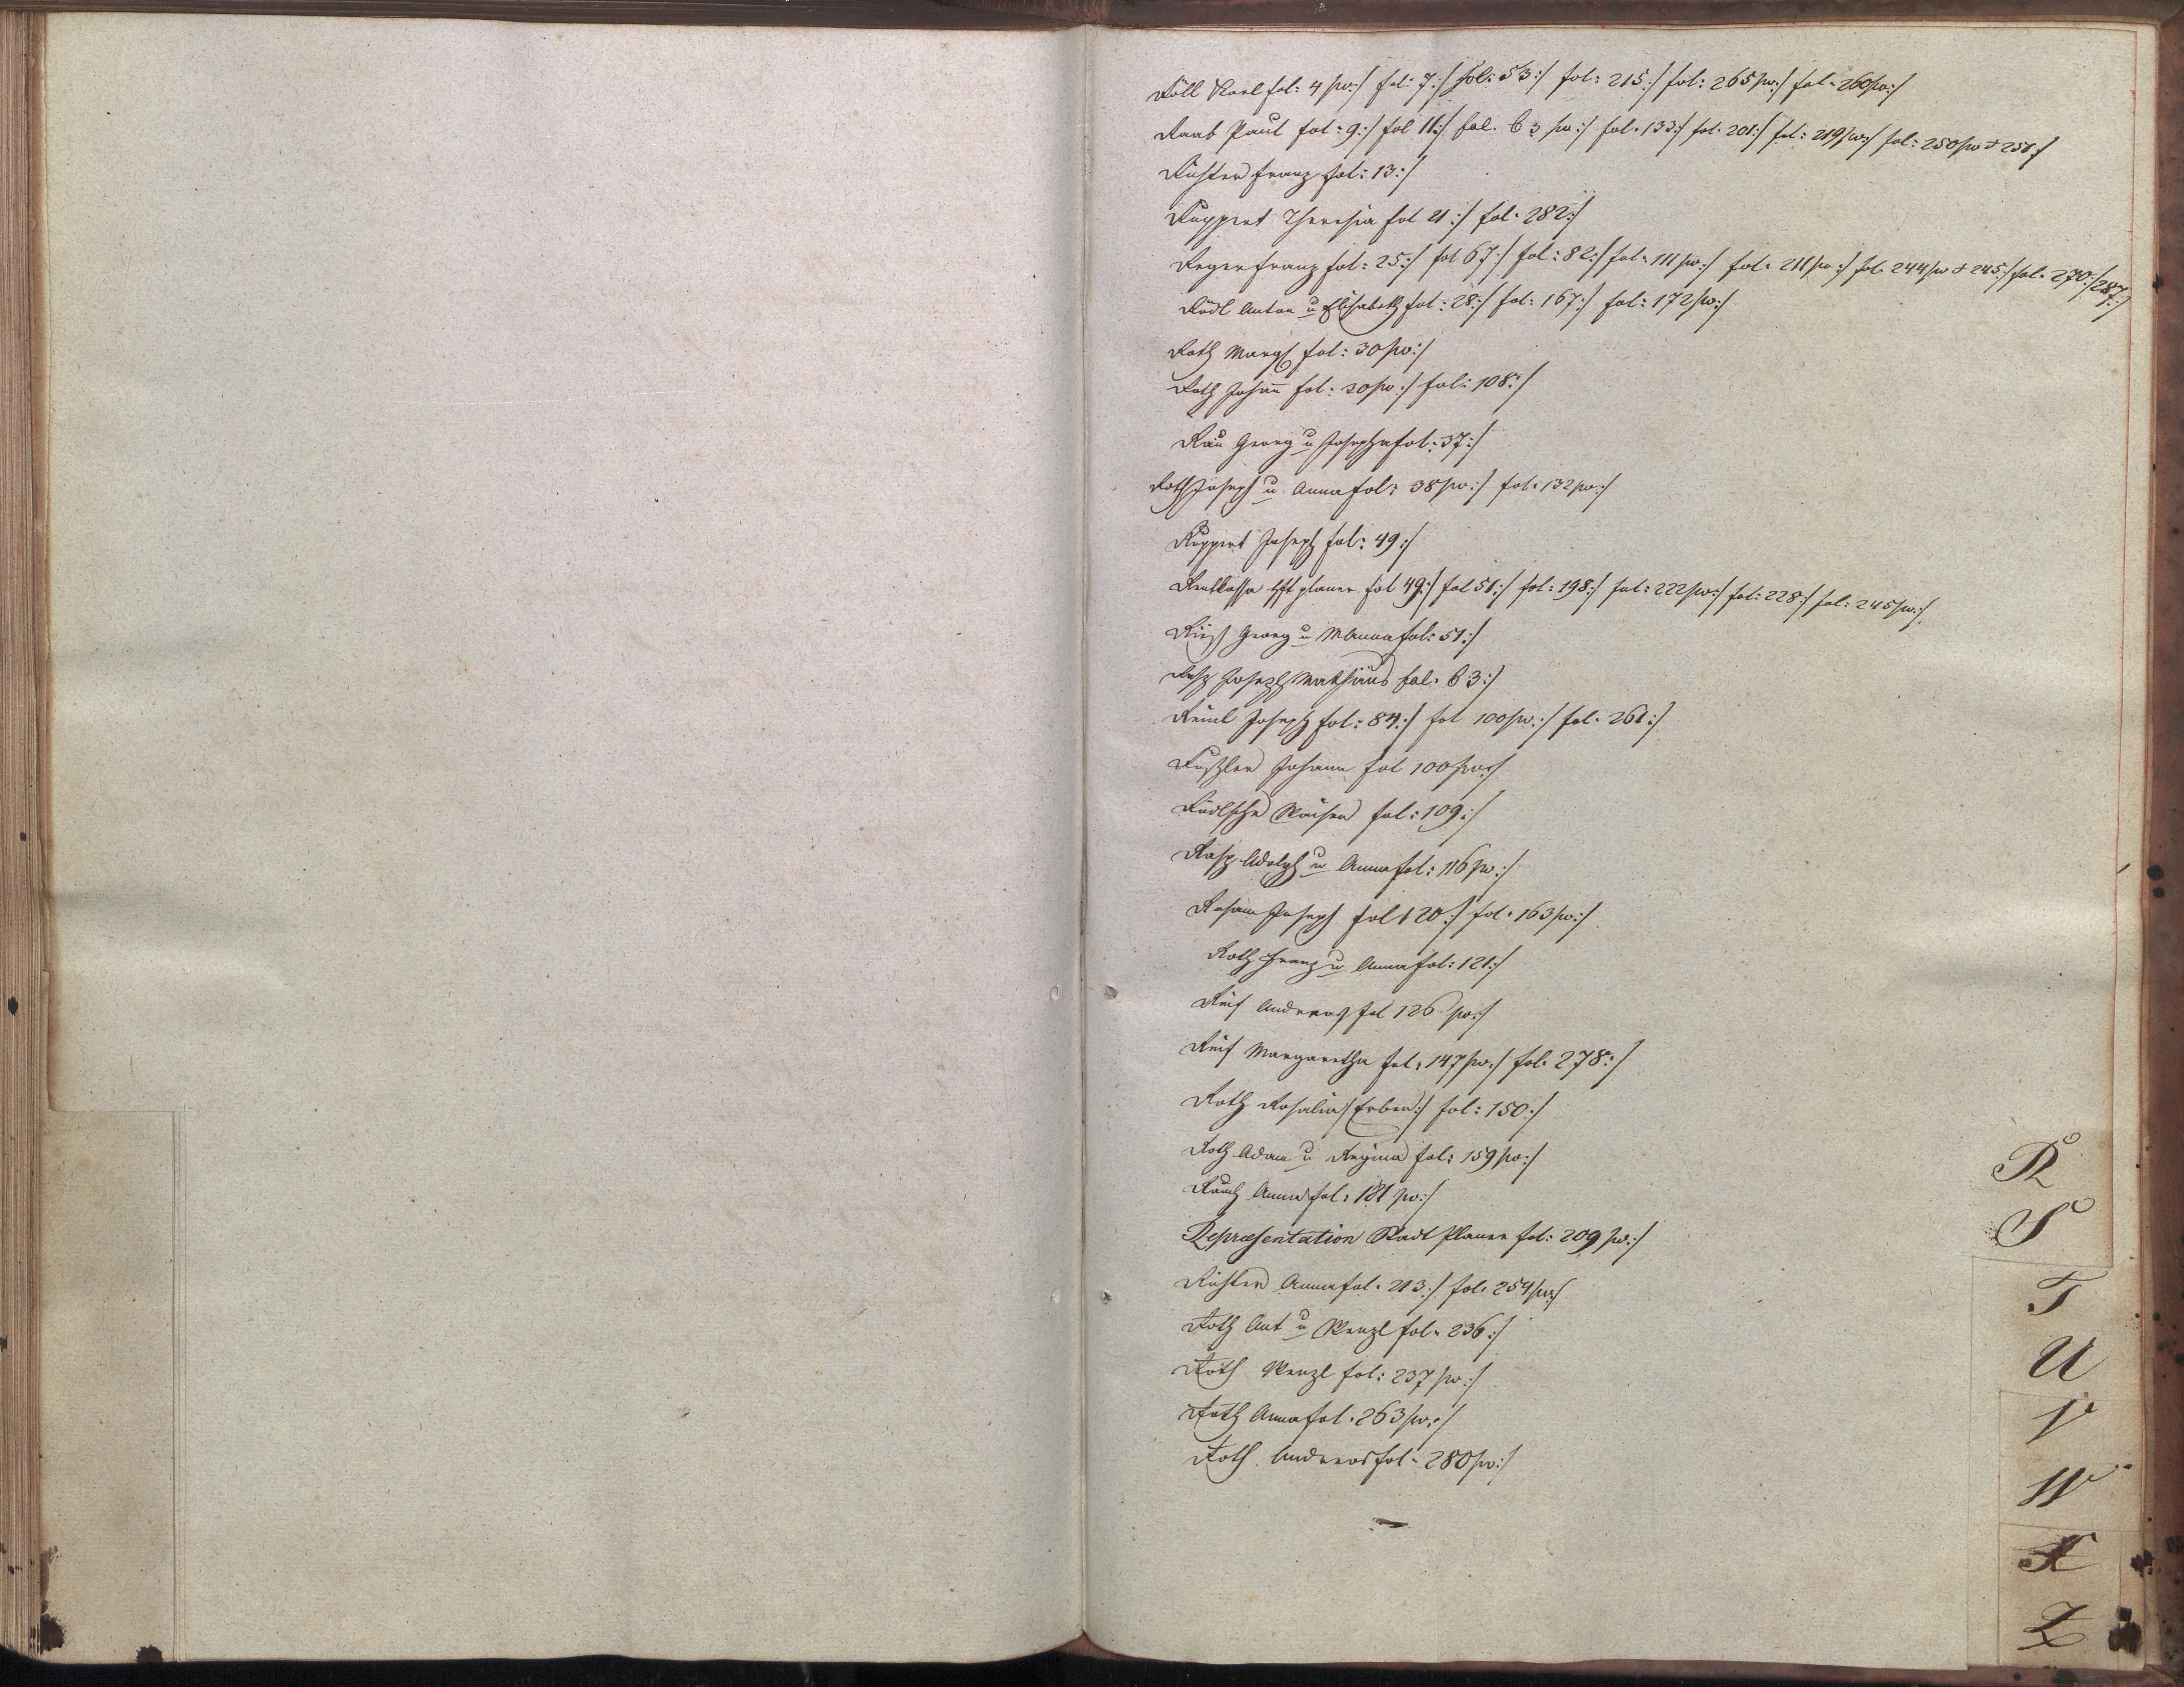 Röll Karl fol: 4 pv:/ fol: 7:/ fol: 53:/ fol: 215:/ fol: 265 pv:/ fol: 260 pv:/
Raab Paul fol: 9:/ fol 11:/ fol. 63 pv:/ fol. 133:/ fol. 201:/ fol: 219 pv:/ fol: 250 pv & 251:/
Richter Franz fol: 13:/
Ruppert Theresia fol 21:/ fol. 282:/
Reger Franz fol: 25:/ fol 67:/ fol: 82:/ fol. 111 pv:/ fol. 211 pv:/ fol. 244 pv & 245:/ fol. 270:/ 287:/
Rödl Anton u Elisabeth fol: 28:/ fol: 167:/ fol: 172 pv:/
Roth Marg fol: 30 pv:/
Roth Johañ fol. 30 pv:/ fol: 108:/
Rau Georg u Josepha fol: 37:/
Roth Joseph u Anna fol: 38 pv:/ fol. 132 pv:/
Ruppert Joseph fol: 49:/
Rentkassa planer fol 49:/ fol 51:/ fol: 198:/ fol: 222 pv:/ fol: 228:/ fol: 245 pv:/
Georg u MAnna fol: 51:/
Joseph Mathäus fol. 63:/
Reinl Joseph fol: 84:/ fol 100 pv:/ fol. 261:/
Johann fol 100 pv:/
Rödlsche Waisen fol: 109:/
Rasp Adolph u Anna fol: 116 pv:/
Joseph fol 120:/ fol. 163 pv:/
Roth Franz u Anna fol: 121:/
Reif Andreas fol 126 pv:/
Reif Margaretha fol. 147 pv:/ fol. 278:/
Roth Rosalia /:Erben:/ fol: 150:/
Roth Adam u Regina fol: 159 pv:/
Rauch Anna fol. 181 pv:/
Repræsentation Stadt Planer fol: 209 pv:/
Richter Anna fol. 213:/ fol. 254 pv:/
Roth Ant u Wenzl fol. 236:/
Roth Wenzl fol: 237 pv:/
Roth Anna fol. 263 pv:/
Roth Andreas fol. 280 pv:/
R
S
T
U
V
W
X
Z